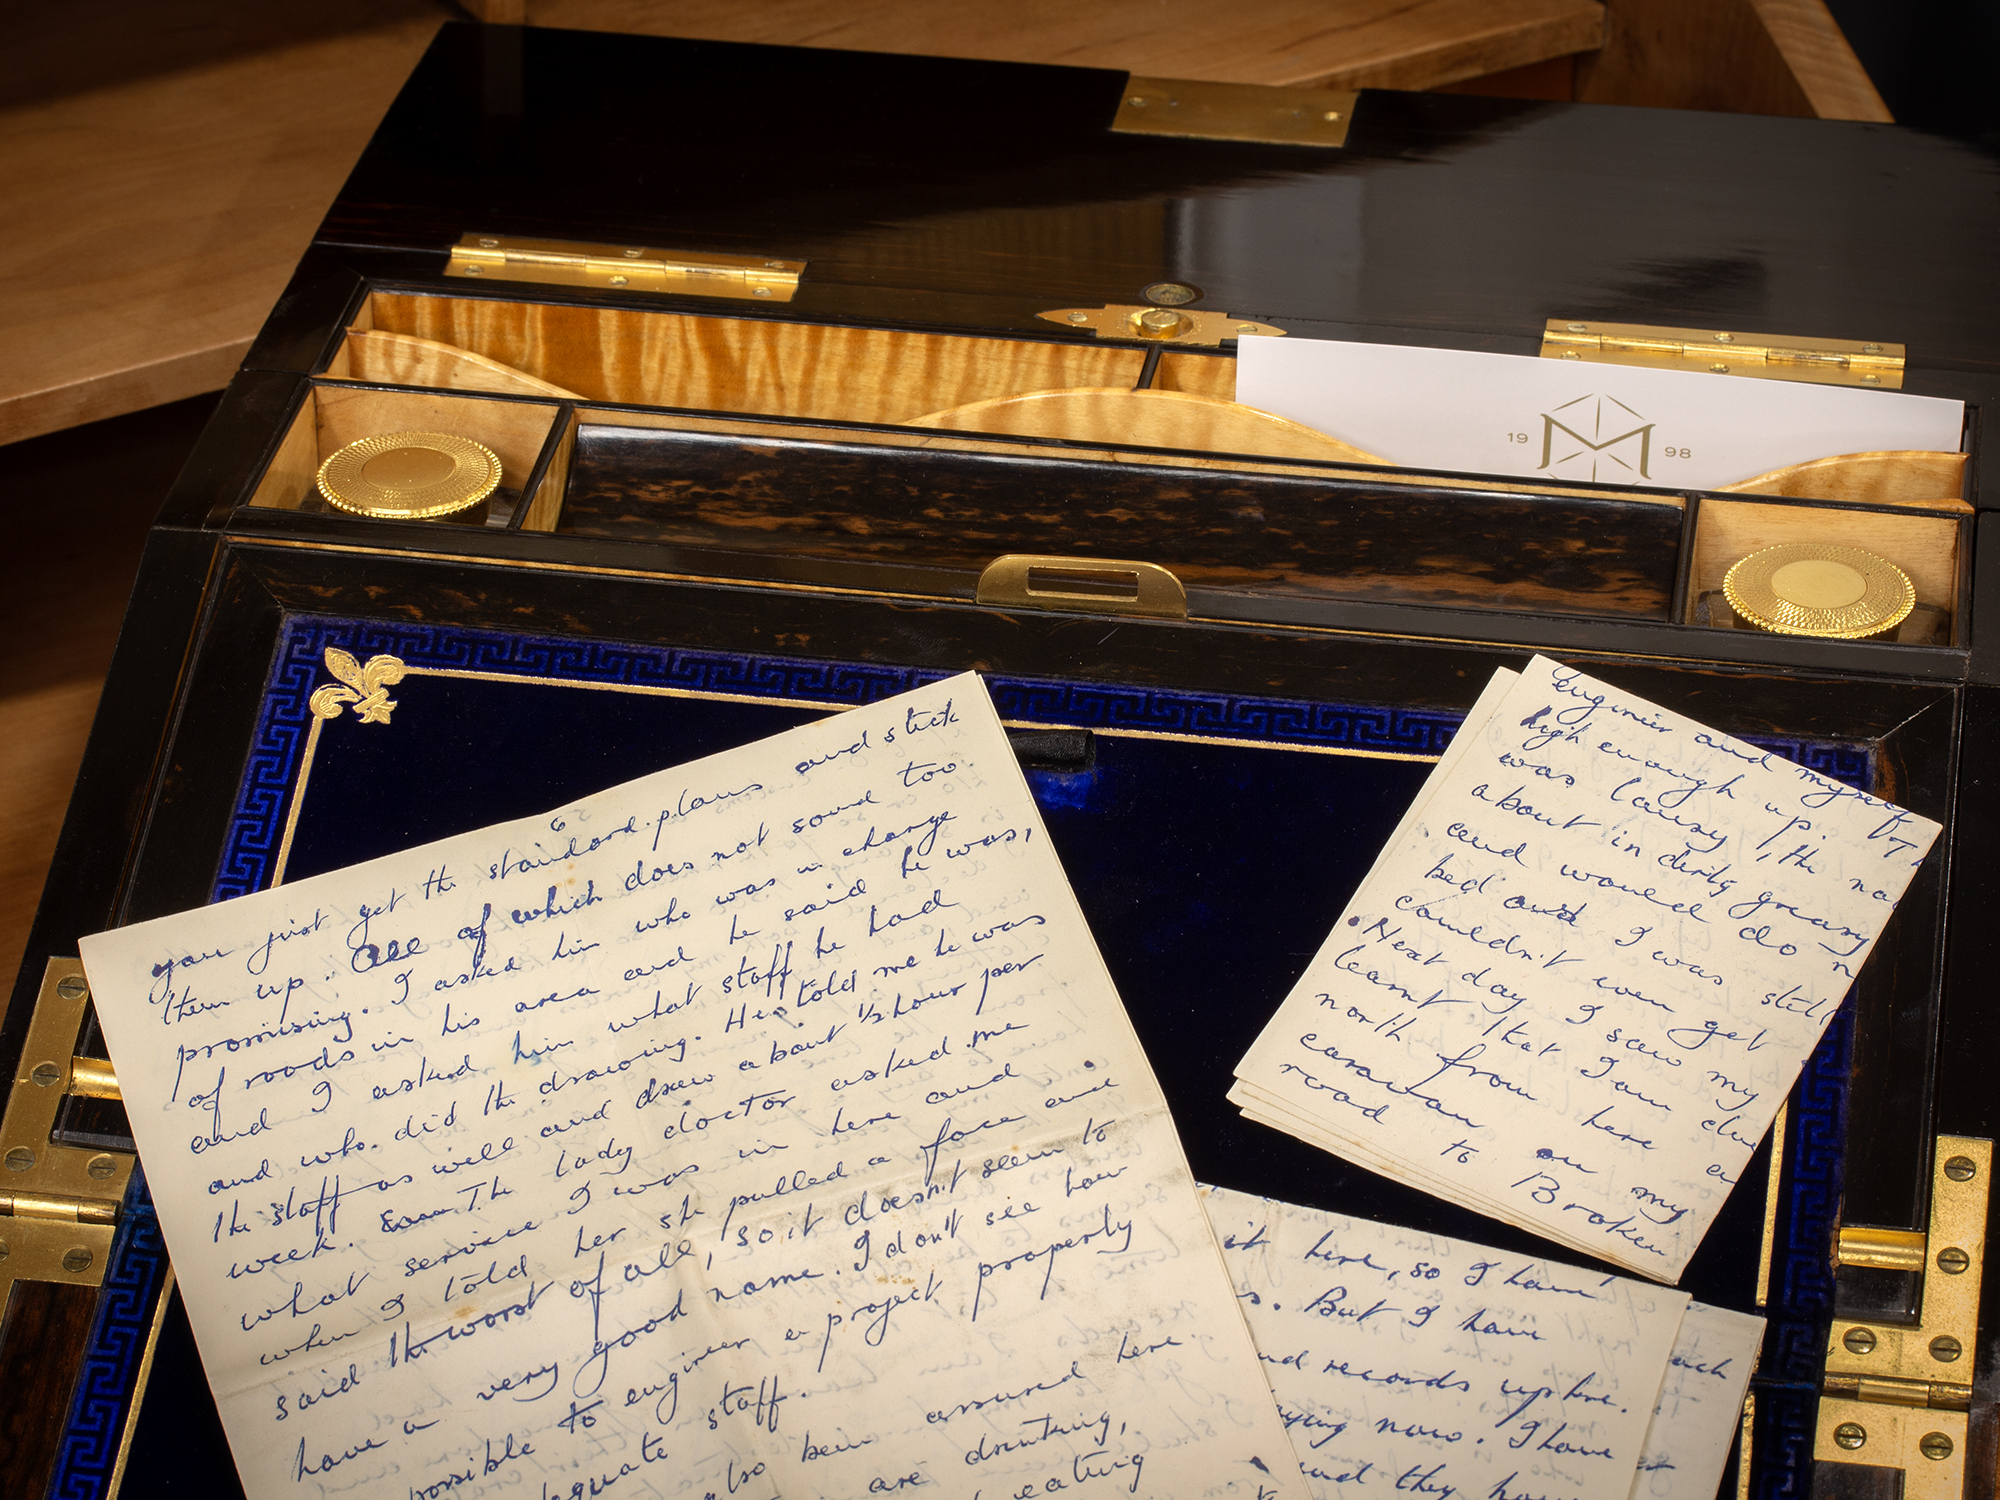 19 M 98
6
you just get the standard plans and stick
them up. All of which does not sound too
promising. I asked him who was in charge
of roads in his area and he said he was,
and I asked him what staff he had
and who did the drawing. He told me he was
the staff as well and drew about 1/2 hour per
week. The lady doctor asked me
what service I was in here and
when I told her she pulled a face and
said the worst of all, so it doesn't seem to
have a very good name. I don't see how
possible to engineer a project properly
staff.
been assured here
are drinking,
eating
engineer and myself
high enough up.
was lousy, the
about in dirty greasy
and would do
bed and I was still
couldn't even get
Next day I saw my
learnt that I am
north from here
caravan on my
road to Broken
it here, so I have
s. But I have
and records up here.
now. I have
and they have